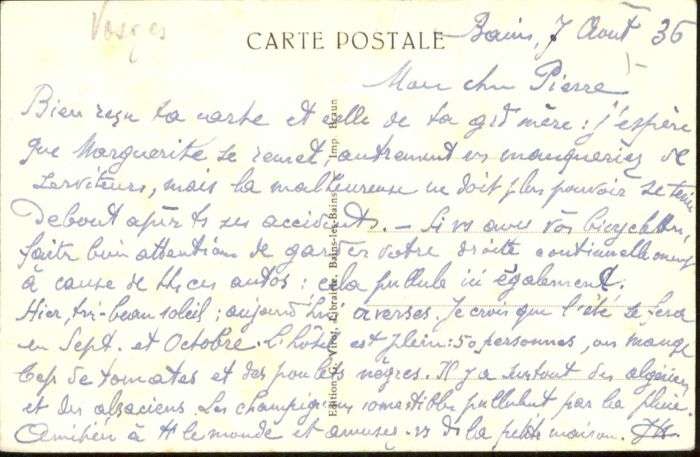 Vosges
CARTE POSTALE
Bains, 7 Août 36
Mon cher Pierre
Bien reçu ta carte et celle de ta gd mère : j'espère
que Marguerite se remet, autrement vs manqueriez de
serviteurs, mais la malheureuse ne doit plus pouvoir se tenir
debout après ts ses accidents. — Si vs avez vos bicyclettes,
faites bien attention de garder votre droite continuellement
à cause de ts ces autos : cela pullule ici également.
Hier, très beau soleil ; aujourd'hui averses. Je crois que l'été se fera
en Sept. et Octobre. L'hôtel est plein : 50 personnes, on mange
bcp de tomates et des poulets nègres. Il y a surtout des algériens
et des alsaciens. Les champignons comestibles pullulent par la pluie.
Amitiés à tt le monde et amusez-vs ds la petite maison.
Edition de Virot, Librairie, Bains-les-Bains Imp. Braun